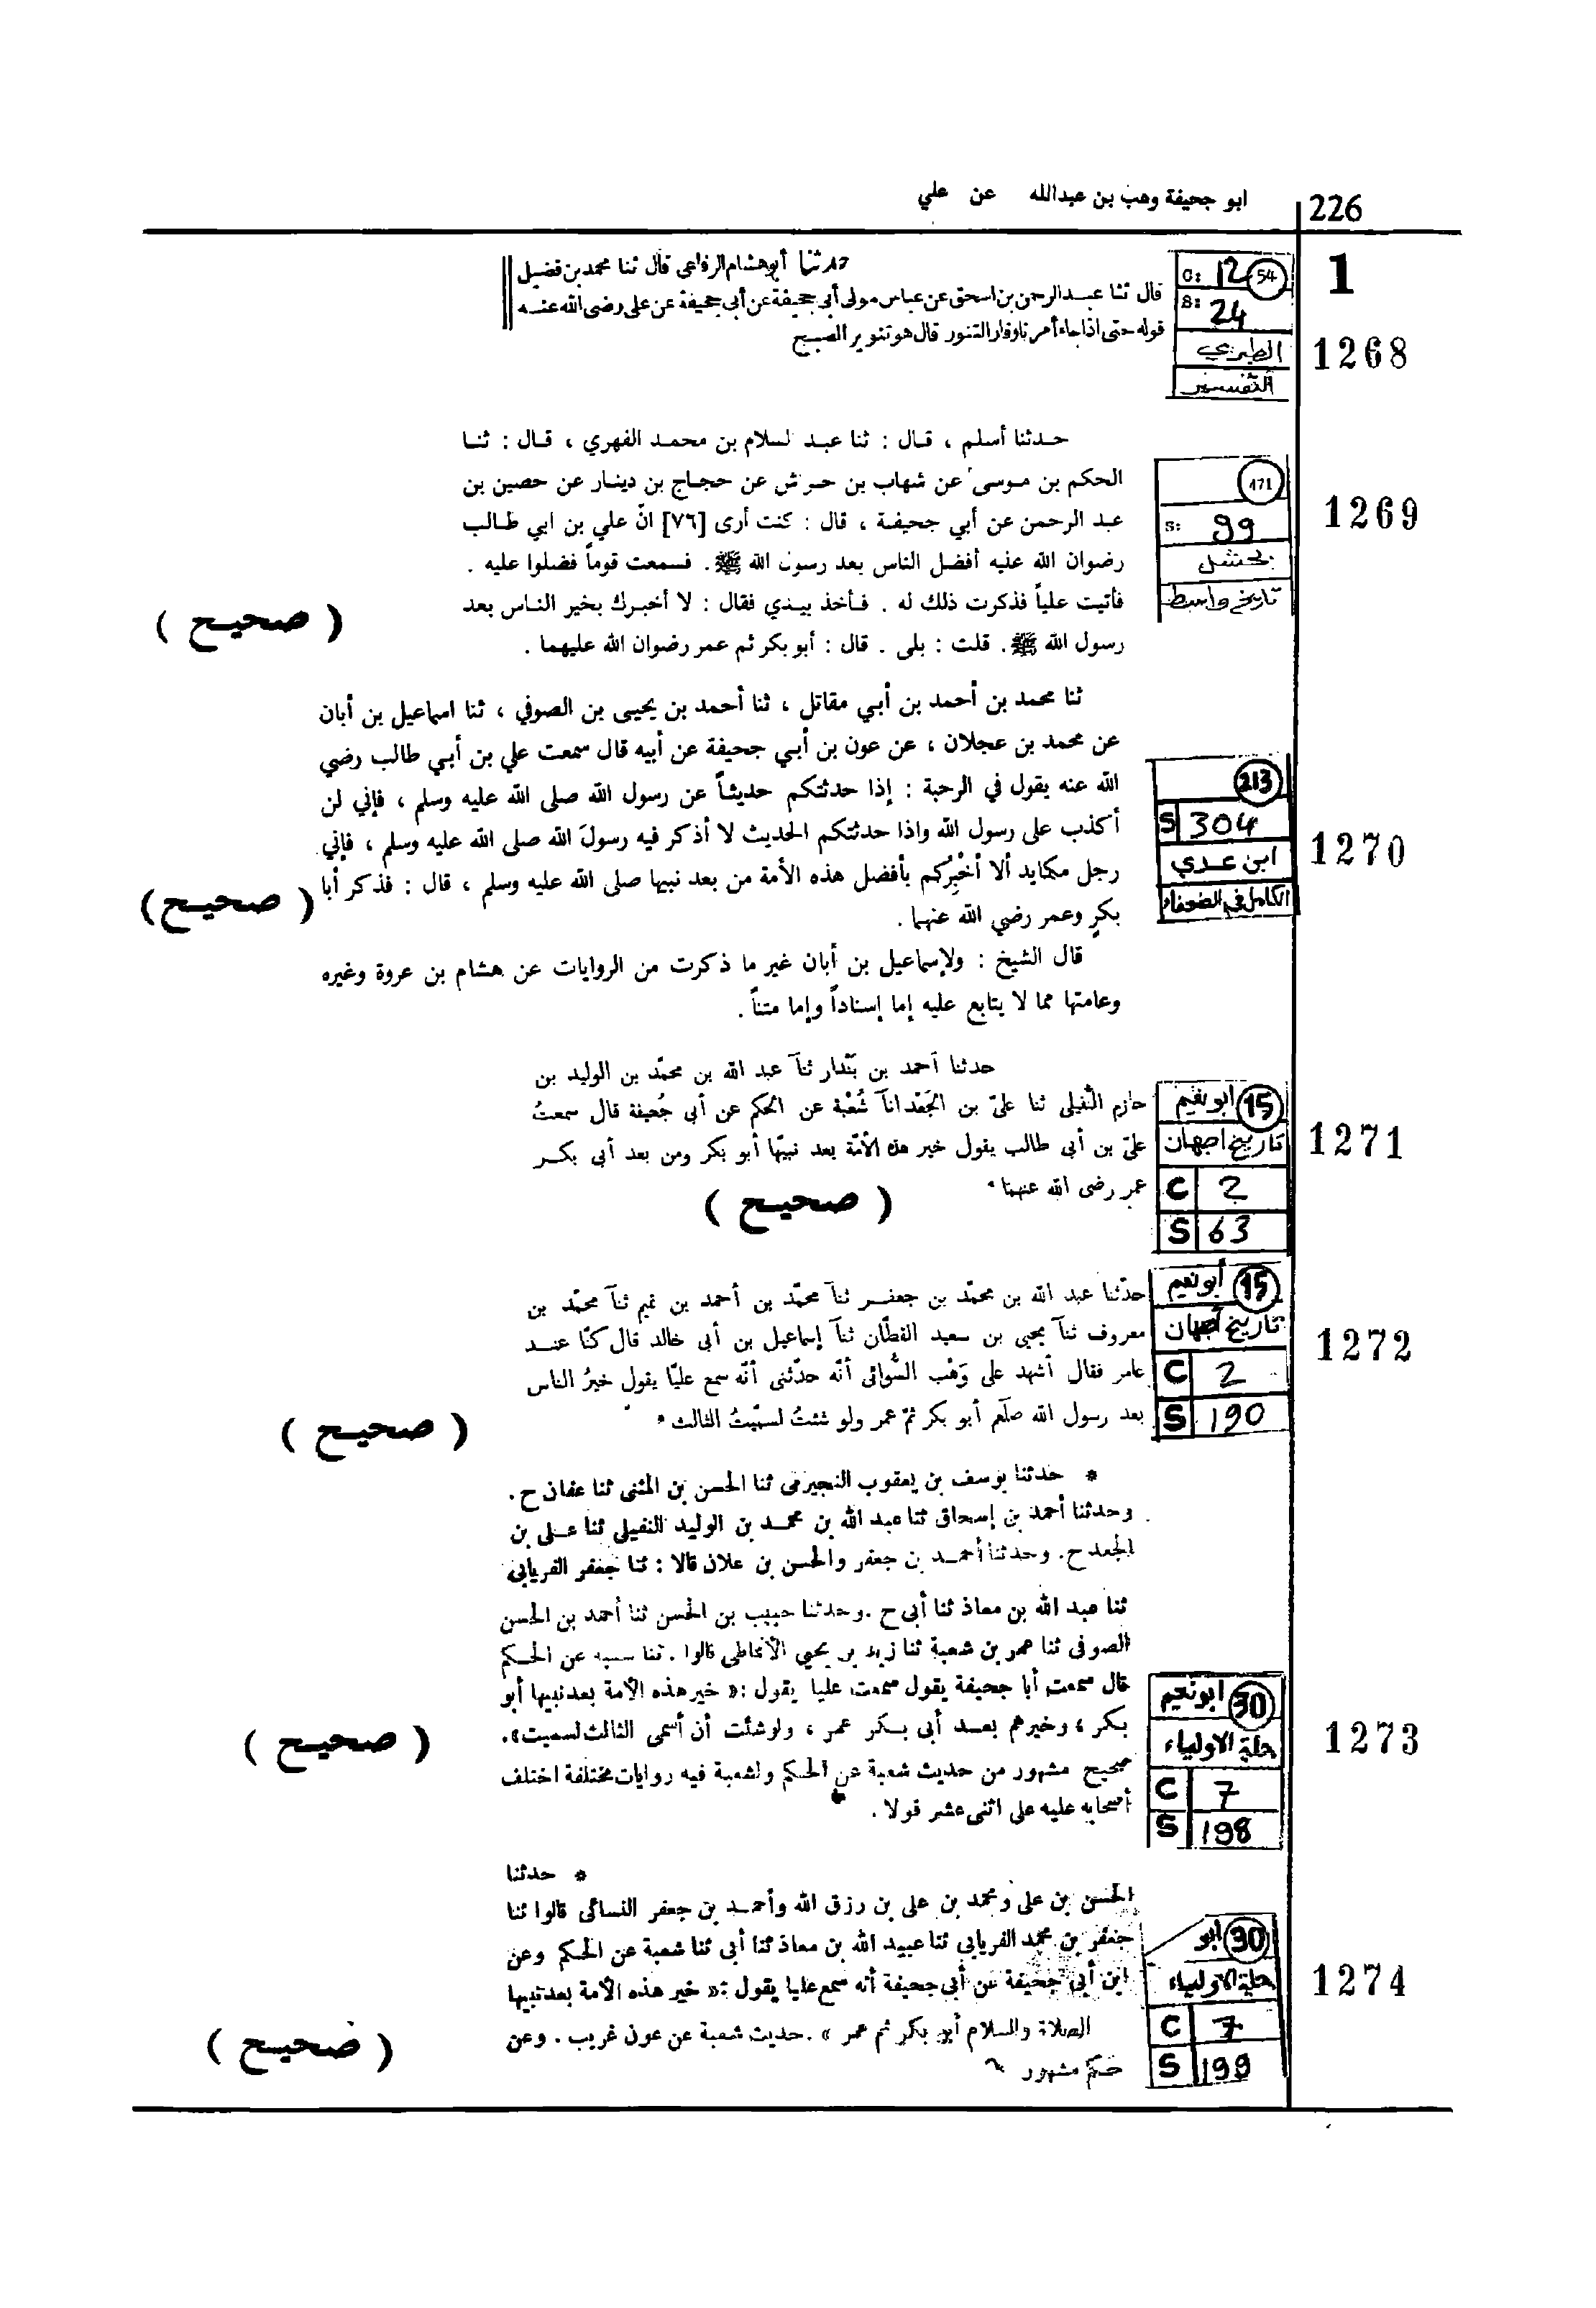 226
ابو جحيفة وهب بن عبدالله عن علي
1
C: 12 54
S: 24
الطبري
التفسير
1268
حدثنا أبو هشام الرفاعى قال ثنا محمد بن فضيل
قال ثنا عبد الرحمن بن اسحق عن عباس مولى أبى جحيفة عن أبى جحيفة عن على رضى الله عنه
قوله حتى اذا جاء أمرنا وفار التنور قال هو تنوير الصبح
171
S: 99
بحشل
تاريخ واسط
1269
حدثنا أسلم ، قال : ثنا عبد السلام بن محمد الفهري ، قال : ثنا
الحكم بن موسى عن شهاب بن حرش عن حجاج بن دينار عن حصين بن
عبد الرحمن عن أبي جحيفة ، قال : كنت أرى [٧٦] انّ علي بن ابي طالب
رضوان الله عليه أفضل الناس بعد رسول الله ﷺ. فسمعت قوماً فضلوا عليه .
فأتيت علياً فذكرت ذلك له . فأخذ بيدي فقال : لا أخبرك بخير الناس بعد
رسول الله ﷺ. قلت : بلى . قال : أبو بكر ثم عمر رضوان الله عليهما .
( صحيح )
213
S 304
ابن عدي
الكامل في الضعفاء
1270
ثنا محمد بن أحمد بن أبي مقاتل ، ثنا أحمد بن يحيى بن الصوفي ، ثنا اسماعيل بن أبان
عن محمد بن عجلان ، عن عون بن أبي جحيفة عن أبيه قال سمعت علي بن أبي طالب رضي
الله عنه يقول في الرحبة : إذا حدثتكم حديثاً عن رسول الله صلى الله عليه وسلم ، فإني لن
أكذب على رسول الله واذا حدثتكم الحديث لا أذكر فيه رسولَ الله صلى الله عليه وسلم ، فإني
رجل مكايد ألا أخْبِرُكم بأفضل هذه الأمة من بعد نبيها صلى الله عليه وسلم ، قال : فذكر أبا
بكرٍ وعمر رضي الله عنهما .
( صحيح )
قال الشيخ : ولإسماعيل بن أبان غير ما ذكرت من الروايات عن هشام بن عروة وغيره
وعامتها مما لا يتابع عليه إما إسناداً وإما متناً .
15 ابونعيم
تاريخ اصبهان
C 2
S 63
1271
حدثنا أحمد بن بُنْدار ثنآ عبد الله بن محمّد بن الوليد بن
حازم النُّفيلى ثنا علىّ بن الجَعْد انآ شُعْبة عن الحكم عن أبى جُحيفة قال سمعتُ
علىّ بن أبى طالب يقول خير هذه الأمّة بعد نبيّها أبو بكر ومن بعد أبى بكر
عمر رضى الله عنهما ٠
( صحيح )
15 أبونعيم
تاريخ أصبهان
C 2
S 190
1272
حدّثنا عبد الله بن محمّد بن جعفر ثنآ محمّد بن أحمد بن تميم ثنآ محمّد بن
معروف ثنآ يحيى بن سعيد القطّان ثنآ إسماعيل بن أبى خالد قال كنّا عند
عامر فقال أشهد على وَهْب السُّوائى أنّه حدّثنى أنّه سمع عليّا يقول خيرُ الناس
بعد رسول الله صلّعم أبو بكر ثمّ عمر ولو شئتُ لسمّيتُ الثالث ٠
( صحيح )
30 ابونعيم
حلية الاولياء
C 7
S 198
1273
* حدثنا يوسف بن يعقوب النجيرمى ثنا الحسن بن المثنى ثنا عفان ح .
وحدثنا أحمد بن إسحاق ثنا عبد الله بن محمد بن الوليد النفيلى ثنا على بن
الجعد ح . وحدثنا أحمد بن جعفر والحسن بن علان قالا : ثنا جعفر الفريابى
ثنا عبد الله بن معاذ ثنا أبى ح . وحدثنا حبيب بن الحسن ثنا أحمد بن الحسن
الصوفى ثنا عمر بن شعبة ثنا زيد بن يحيى الأنماطى قالوا . ثنا شعبة عن الحكم
قال سمعت أبا جحيفة يقول سمعت عليا يقول : « خير هذه الأمة بعد نبيها أبو
بكر ، وخيرهم بعد أبى بكر عمر ، ولو شئت أن أسمى الثالث لسميت » .
صحيح مشهور من حديث شعبة عن الحكم ولشعبة فيه روايات مختلفة اختلف
أصحابه عليه على اثنى عشر قولا .
( صحيح )
30 ابو
حلية الاولياء
C 7
S 199
1274
* حدثنا
الحسن بن على ومحمد بن على بن رزق الله وأحمد بن جعفر النسائى قالوا ثنا
جعفر بن محمد الفريابى ثنا عبيد الله بن معاذ ثنا أبى ثنا شعبة عن الحكم وعن
ابن أبى جحيفة عن أبى جحيفة أنه سمع عليا يقول : « خير هذه الأمة بعد نبيها
الصلاة والسلام أبو بكر ثم عمر » . حديث شعبة عن عون غريب . وعن
حكم مشهور
( صحيح )